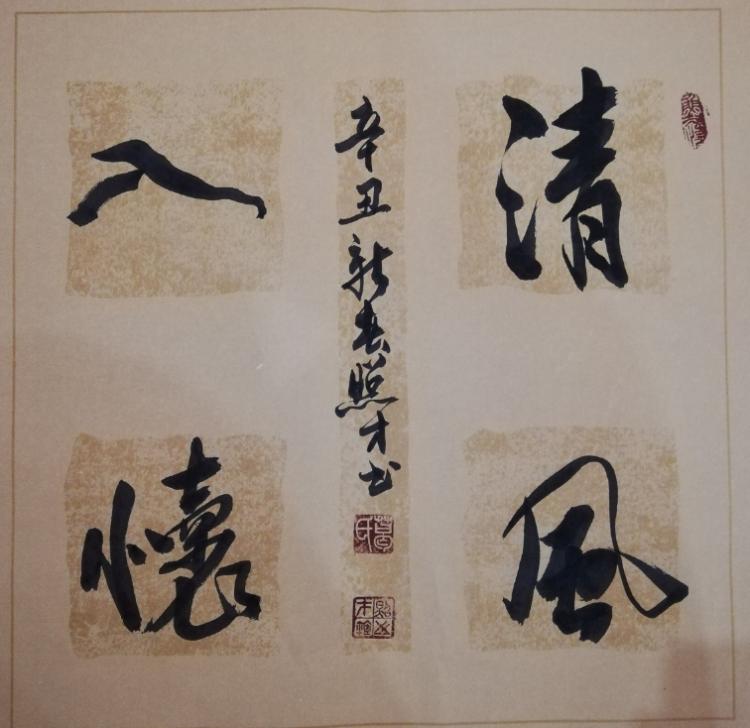 清風
入懷
辛丑新春照才书